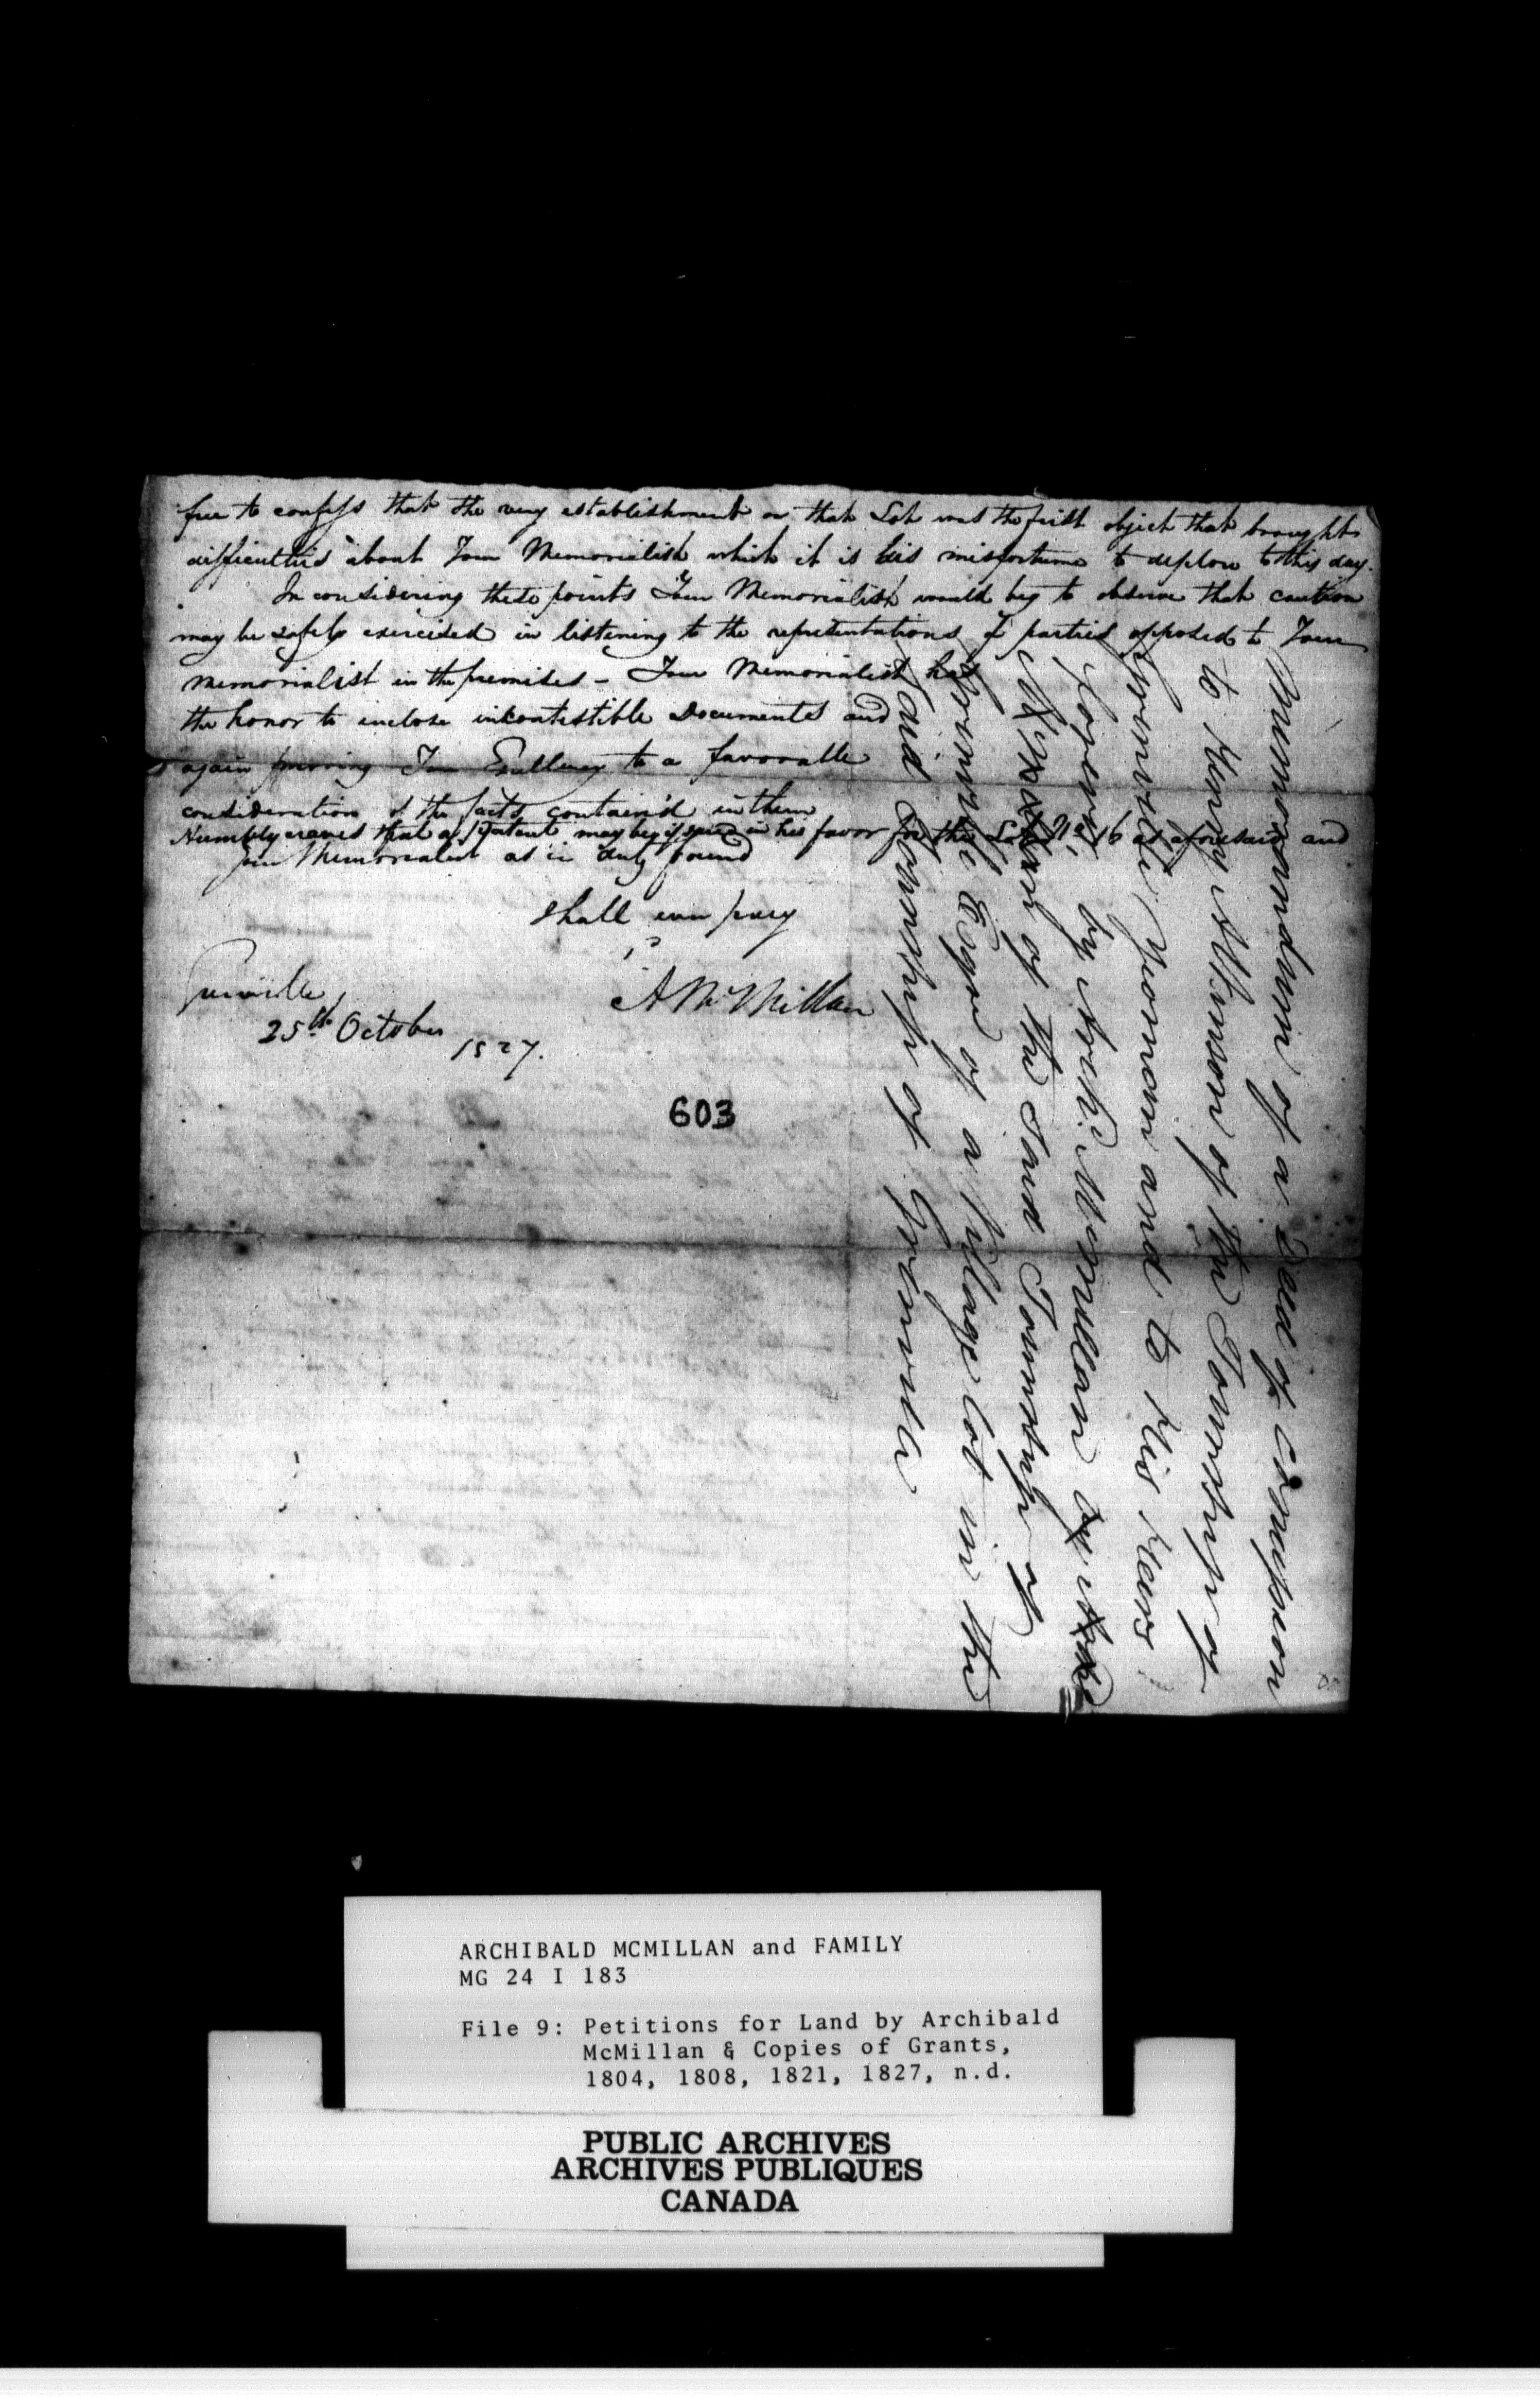 free to confess that the very establishment on that Lot was the first object that brought
difficulties about Your Memorialist which it is his misfortune to deplore to this day.
In considering these points Your Memorialist would beg to observe that caution
may be safely exercised in listening to the representations of parties opposed to Your
Memorialist in the premises – Your Memorialist has
the honor to inclose incontestible Documents and
again Your Excellency to a favorable
consideration of the facts contained in them
Humbly craves that a Patent may be issued in his favor for the Lot No 16 as aforesaid and
Your Memorialist as in duty bound
shall ever pray
A McMillan
Grenville
25th October 1827.
603
Memorandum of a Deed of
to Henry of the Township of
Grenville Yeoman and to his heirs
by Archd McMillan
of the said Township of
Grenville Esqre of a Village lot in the
said Township of Grenville
ARCHIBALD MCMILLAN and FAMILY
MG 24 I 183
File 9: Petitions for Land by Archibald
McMillan & Copies of Grants,
1804, 1808, 1821, 1827, n.d.
PUBLIC ARCHIVES
ARCHIVES PUBLIQUES
CANADA